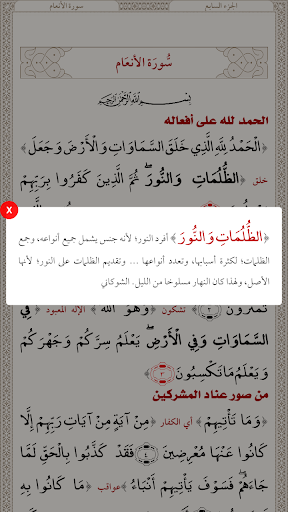 الجزء السابع
سورة الأنعام
سُّورَة الأنعَام
بِسْمِ اللَّهِ الرَّحْمَٰنِ الرَّحِيمِ
الحمد لله على أفعاله
﴿الْحَمْدُ لِلَّهِ الَّذِي خَلَقَ السَّمَاوَاتِ وَالْأَرْضَ وَجَعَلَ﴾
خلق ﴿الظُّلُمَاتِ وَالنُّورَ ۖ ثُمَّ الَّذِينَ كَفَرُوا بِرَبِّهِمْ
X
﴿الظُّلُمَاتِ وَالنُّورَ﴾ أفرد النور؛ لأنه جنس يشمل جميع أنواعه، وجمع
الظلمات؛ لكثرة أسبابها، وتعدد أنواعها ... وتقديم الظلمات على النور؛ لأنها
الأصل، ولهذا كان النهار مسلوخا من الليل. الشوكاني
تَمْتَرُونَ ٢﴾ تشكون ﴿وَهُوَ اللَّهُ﴾ الإله المعبود ﴿فِي
السَّمَاوَاتِ وَفِي الْأَرْضِ ۖ يَعْلَمُ سِرَّكُمْ وَجَهْرَكُمْ
وَيَعْلَمُ مَا تَكْسِبُونَ ٣﴾
من صور عناد المشركين
﴿وَمَا تَأْتِيهِمْ﴾ أي الكفار ﴿مِنْ آيَةٍ مِنْ آيَاتِ رَبِّهِمْ إِلَّا
كَانُوا عَنْهَا مُعْرِضِينَ ٤ فَقَدْ كَذَّبُوا بِالْحَقِّ لَمَّا
جَاءَهُمْ ۖ فَسَوْفَ يَأْتِيهِمْ أَنْبَاءُ﴾ عواقب ﴿مَا كَانُوا بِهِ